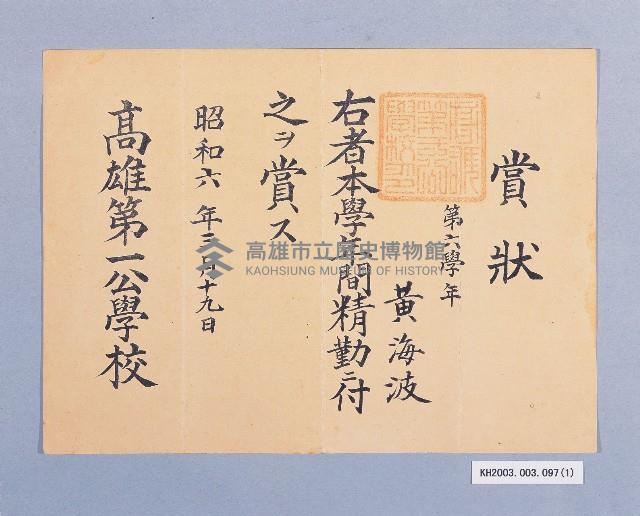 賞狀
第六學年
黃海波
右者本學年間精勤ニ付
之ヲ賞ス
昭和六年三月十九日
高雄第一公學校
高雄市立歷史博物館
KAOHSIUNG MUSEUM OF HISTORY
KH2003.003.097(1)